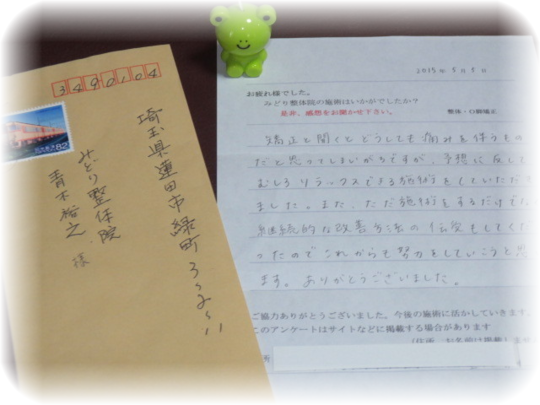 3490104
埼玉県蓮田市緑町
みどり整体院
青木裕之 様
82
2015年5月5日
お疲れ様でした。
みどり整体院の施術はいかがでしたか?
是非、感想をお聞かせ下さい。
整体・O脚矯正
矯正と聞くとどうしても痛みを伴うもの
だと思ってしまいがちですが、予想に反して
むしろリラックスできる施術をしていただ
ました。また、ただ施術をするだけでな
継続的な改善方法の伝受もしてくだ
ったのでこれからも努力をしていこうと思
ます。ありがとうございました。
ご協力ありがとうございました。今後の施術に活かしていきます。
このアンケートはサイトなどに掲載する場合があります